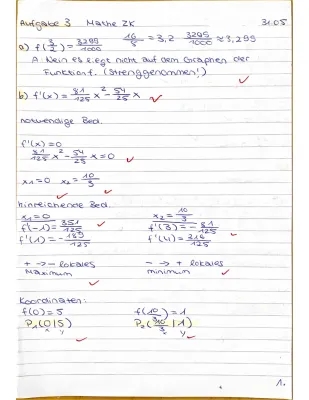 Aufgabe 3 Mathe ZK 31.05
a) f(3/2) = 3295/1000 16/5 = 3,2 3295/1000 ≈ 3,295
A: Nein es liegt nicht auf dem Graphen der
Funktion f. (Strenggenommen!)
b) f'(x) = 81/125 x² - 54/25 x ✓
notwendige Bed.
f'(x) = 0
81/125 x² - 54/25 x = 0 ✓
x₁=0 x₂= 10/3 ✓
hinreichende Bed.
x₁=0 x₂= 10/3
f'(-1) = 351/125 ✓ f'(3) = - 81/125
f'(1) = - 189/125 ✓ f'(4) = 216/125 ✓
+ → - lokales - → + lokales
Maximum ✓ minimum ✓
Koordinaten:
f(0) = 5 f(10/3) = 1
P₁(0|5) ✓ P₂(10/3|1) ✓
x y x y
1.